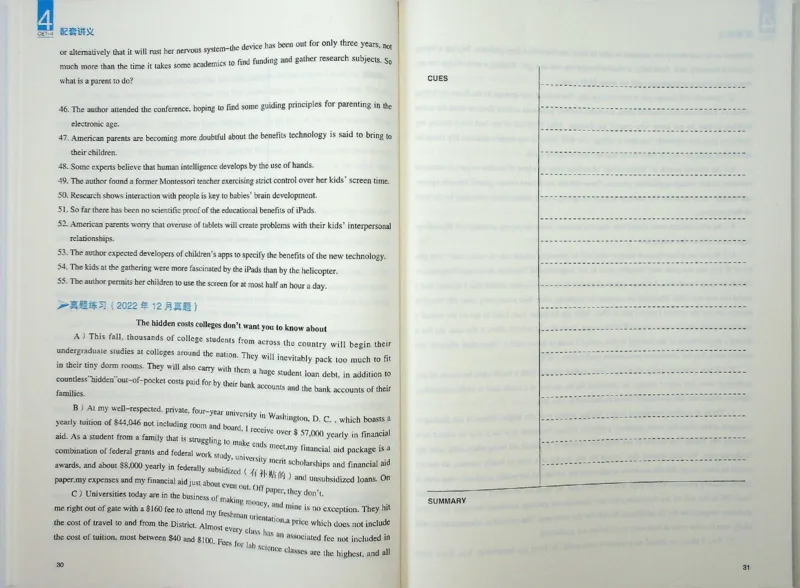 4
CET-4
配套讲义
or alternatively that it will rust her nervous system-the device has been out for only three years, not
much more than the time it takes some academics to find funding and gather research subjects. So
what is a parent to do?
46. The author attended the conference, hoping to find some guiding principles for parenting in the
electronic age.
47. American parents are becoming more doubtful about the benefits technology is said to bring to
their children.
48. Some experts believe that human intelligence develops by the use of hands.
49. The author found a former Montessori teacher exercising strict control over her kids' screen time.
50. Research shows interaction with people is key to babies' brain development.
51. So far there has been no scientific proof of the educational benefits of iPads.
52. American parents worry that overuse of tablets will create problems with their kids' interpersonal
relationships.
53. The author expected developers of children's apps to specify the benefits of the new technology.
54. The kids at the gathering were more fascinated by the iPads than by the helicopter.
55. The author permits her children to use the screen for at most half an hour a day.
真题练习(2022 年 12 月真题)
The hidden costs colleges don't want you to know about
A) This fall, thousands of college students from across the country will begin their
undergraduate studies at colleges around the nation. They will inevitably pack too much to fit
in their tiny dorm rooms. They will also carry with them a huge student loan debt, in addition to
countless"hidden"out-of-pocket costs paid for by their bank accounts and the bank accounts of their
families.
B) At my well-respected, private, four-year university in Washington, D. C. , which boasts a
yearly tuition of $44,046 not including room and board, I receive over $ 57,000 yearly in financial
aid. As a student from a family that is struggling to make ends meet,my financial aid package is a
combination of federal grants and federal work study, university merit scholarships and financial aid
awards, and about $8,000 yearly in federally subsidized (有补贴的) and unsubsidized loans. On
paper,my expenses and my financial aid just about even out. Off paper, they don't.
C) Universities today are in the business of making money, and mine is no exception. They hit
me right out of gate with a $160 fee to attend my freshman orientation,a price which does not include
the cost of travel to and from the District. Almost every class has an associated fee not included in
the cost of tuition, most between $40 and $100. Fees for lab science classes are the highest, and all
30
CUES
SUMMARY
31